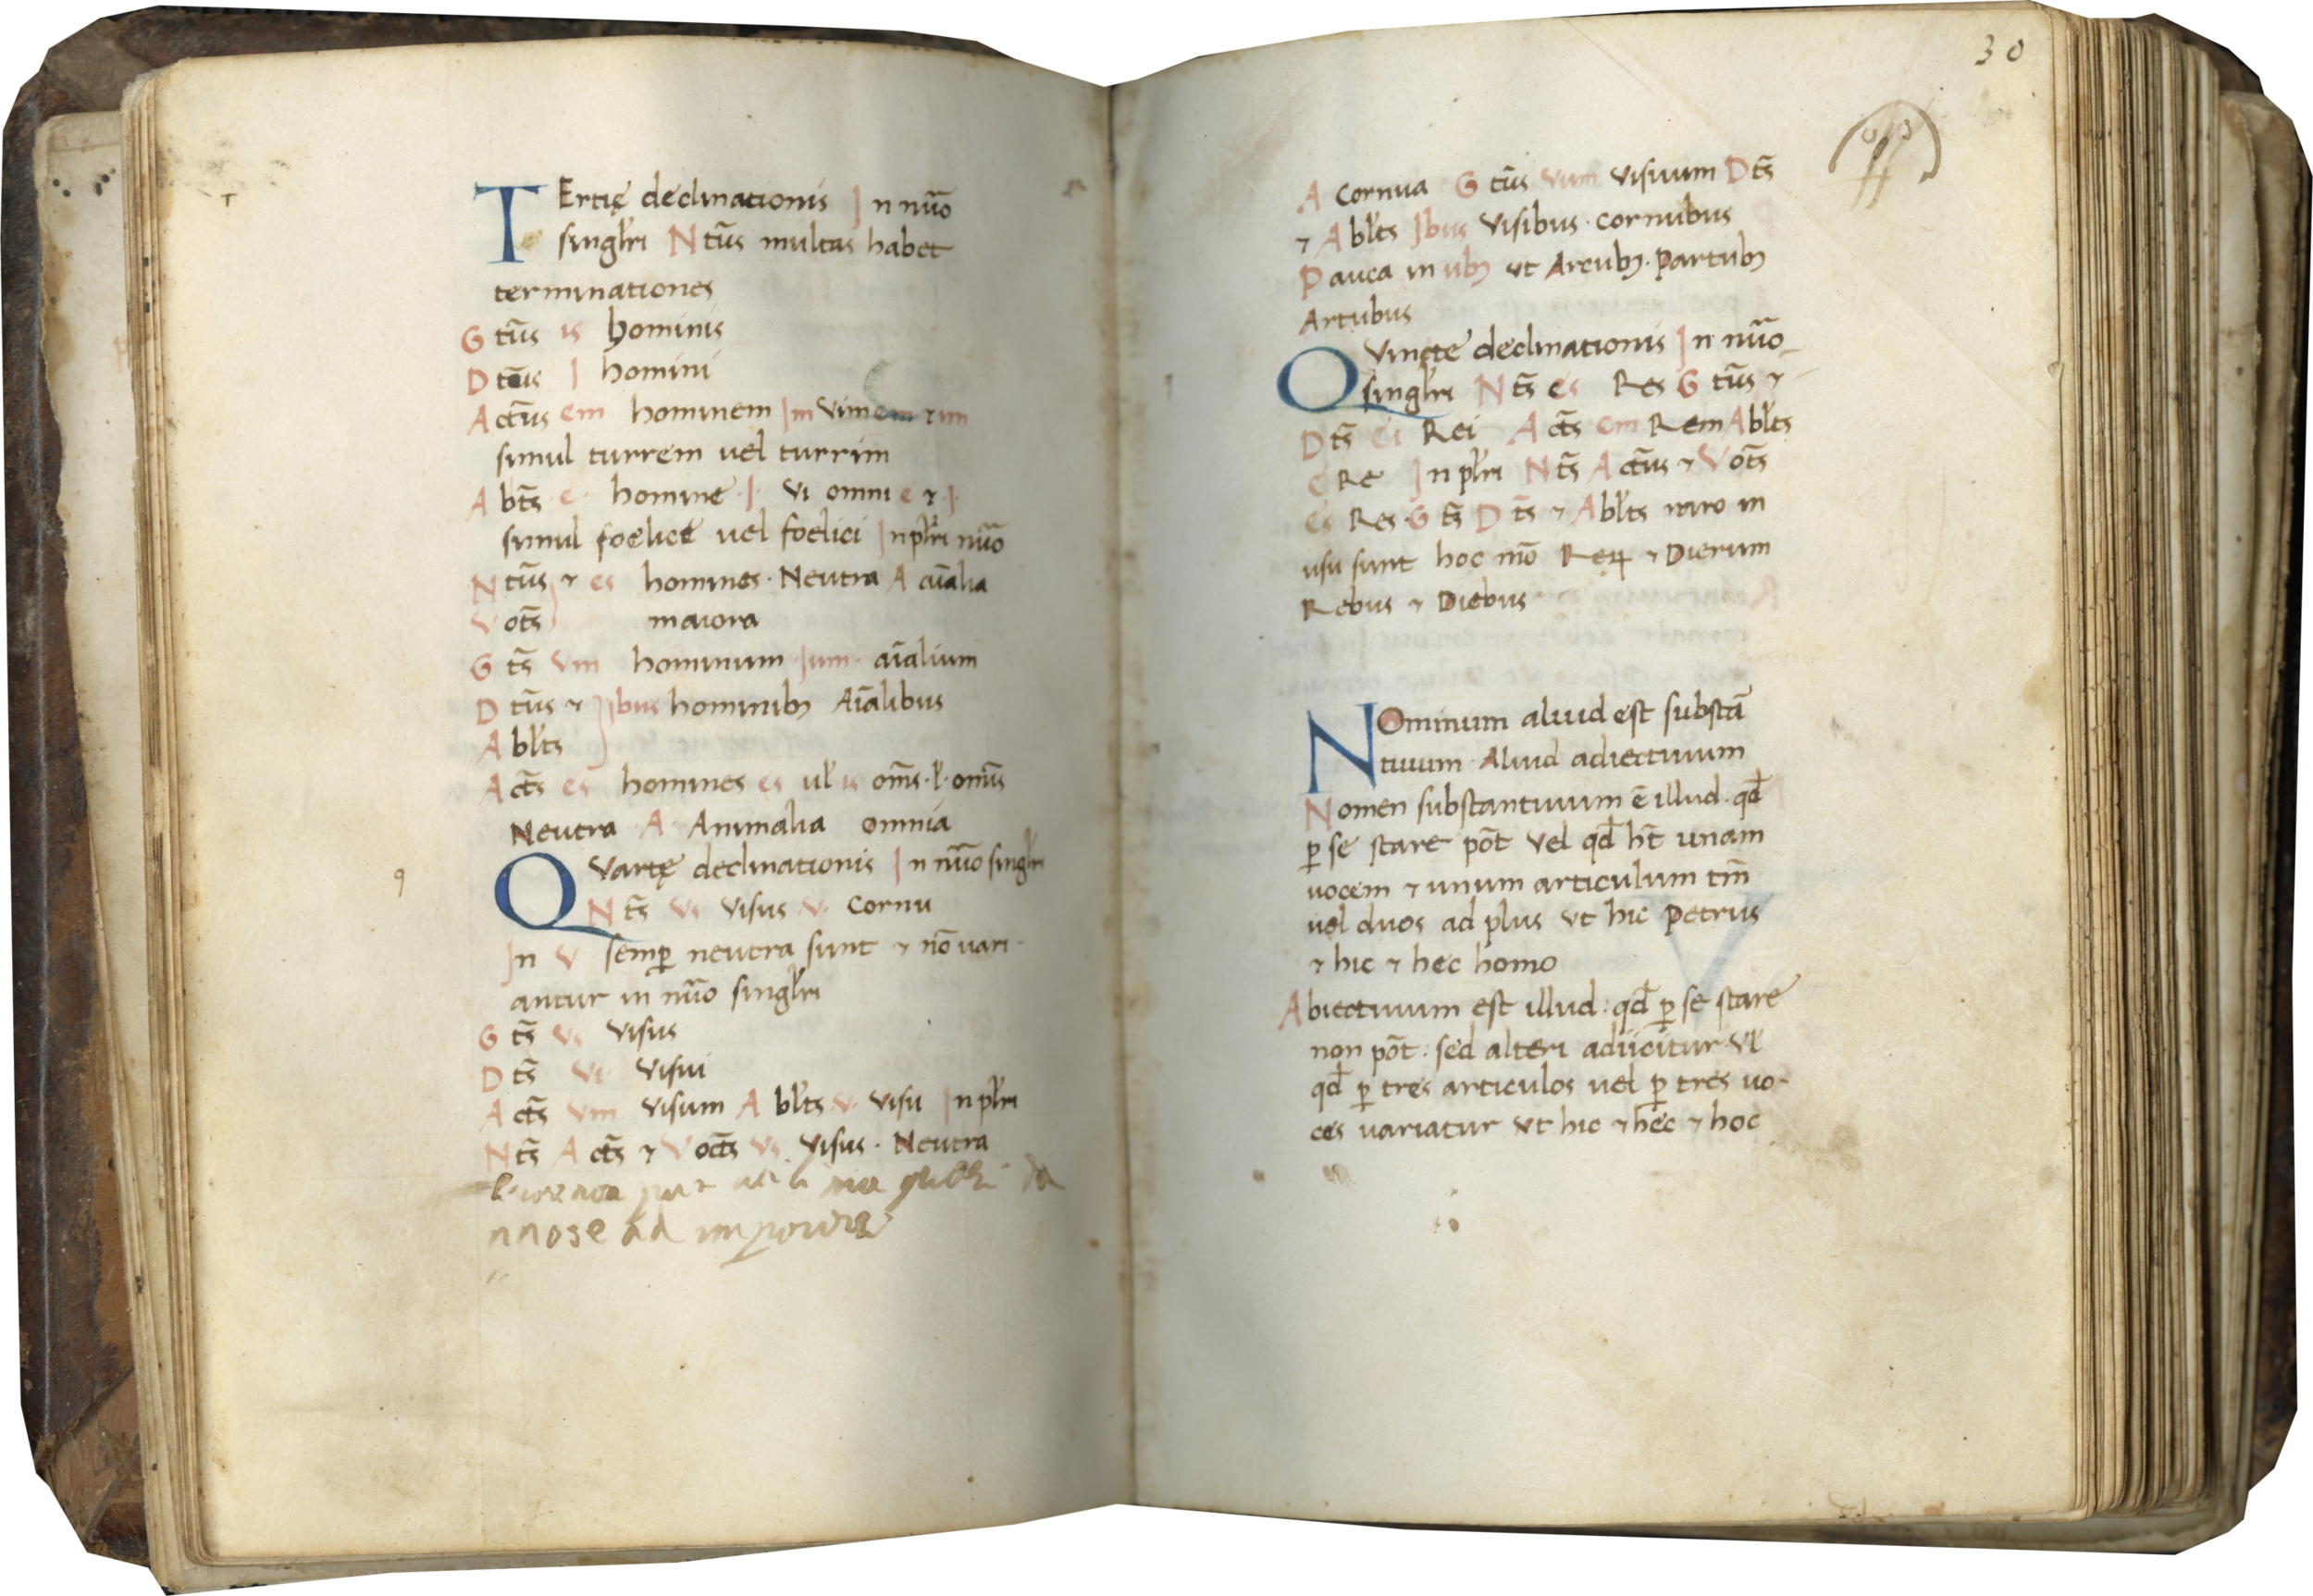 T
TErtię declinationis In nūo
singl̄ri Ntūs multas habet
terminationes
Gtūs is hominis
Dtūs I homini
Actūs em hominem Im Vim em ⁊ im
simul turrem uel turrim
Abt̄s e· homine ·I· Vi omni e ⁊ ·I·
simul foelice uel foelici In pl̄ri nūo
Ntūs ⁊ es homines · Neutra A aīalia
Vot̄s maiora
Gt̄s Vm hominum ·Ium· aīalium
Dtūs ⁊ Ibus hominibꝫ Aīalibus
Abl̄ts
Act̄s es homines es ul̄ is om̄s · l̄ · omīs
Neutra · A · Animalia omnia
q
QVartę declinationis In nūo singl̄ri
Nt̄s Vs Visus ·V· Cornu
In V semꝑ neutra sunt ⁊ nō vari-
antur in nūo singl̄ri
Gt̄s Vs Visus
Dt̄s Vi Visui
Act̄s Vm Visum Abl̄ts ·V· Visu In pl̄ri
Nt̄s Act̄s ⁊ Voct̄s Vs Visus · Neutra
30
A Cornua Gtūs Vum Visuum Dt̄s
⁊ Abl̄ts Ibus Visibus · Cornubus
Pauca in ubꝫ ut Arcubꝫ · Partubꝫ
Artubus
QVincte declinationis In nūo
singl̄ri Nt̄s es Res Gtūs ⁊
Dt̄s Ei Rei Act̄s em Rem Abl̄ts
E Re In pl̄ri Nt̄s Actūs ⁊ Vot̄s
Es Res · Gt̄s Dt̄s ⁊ Abl̄ts raro in
usu sunt hoc mō Reꝝ ⁊ Dierum
Rebus ⁊ Diebus
NOminum aliud est substā
tiuum · Aliud adiectiuum
Nomen substantiuum ē illud · qđ
ꝑ se stare pōt Vel qđ ht̄ unam
uocem ⁊ unum articulum tm̄
uel duos ad plus Vt hic Petrus
⁊ hic ⁊ hec homo
Abiectiuum est illud : qđ ꝑ se stare
non pōt : sed alteri adiicitur Vl̄
qđ ꝑ tres articulos uel ꝑ tres uo-
ces uariatur Vt hic ⁊ hec ⁊ hoc